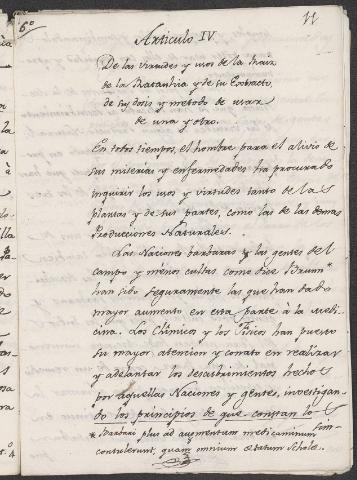 11
6º
Articulo IV
De las virtudes y usos de la Raiz
de la Ratanhia y de su Extracto,
de su dosis y metodo de usar
de una y otro.
En todos tiempos, el hombre para el alivio de
sus miserias y enfermedades ha procurado
inquirir los usos y virtudes tanto de las
plantas y de sus partes, como las de las demas
Producciones Naturales.
Las Naciones barbaras y las gentes del
campo y menos cultas como dice Brunn*
han sido seguramente las que han dado
mayor aumento en esta parte à la Medi-
cina. Los Chimicos y los Fisicos han puesto
su mayor atencion y conato en realizar
y adelantar los descubrimientos hechos
por aquellas Naciones y gentes, investigan-
do los principios de que constan lo
* Barbari plus ad augmentum medicaminum
contulerunt, quam omnium ætatum Scholæ.